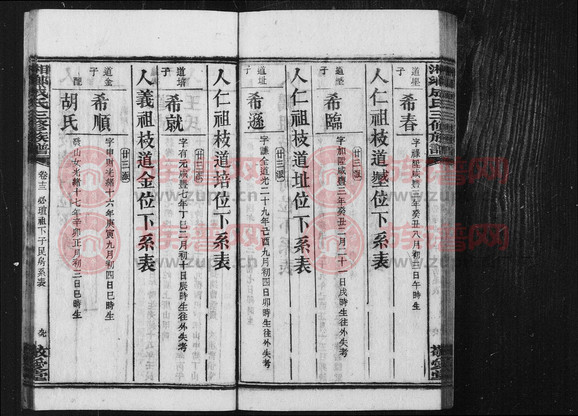 湘鄉成氏三修族譜
希春
字 咸豐三年癸丑八月初三日午時生
人仁祖枝道塋位下系表
廿三派
道塋
子
希臨
字如 咸豐三年癸丑二月二十一日戌時生往外失考
人仁祖枝道址位下系表
廿三派
道址
子
希遜
字謙全道光二十九年己酉九月初四日卯時生往外失考
人仁祖枝道培位下系表
廿三派
道培
子
希就
字有元咸豐七年丁巳二月初十日辰時生往外失考
人義祖枝道金位下系表
廿三派
道金
子
希順
字申 光緒十六年庚寅九月初四日巳時生
配
胡氏
山女光緒十七年辛卯正月初三日巳時生
湘鄉成氏三修族譜
卷十三
必琯祖下子民房系表
敬愛堂